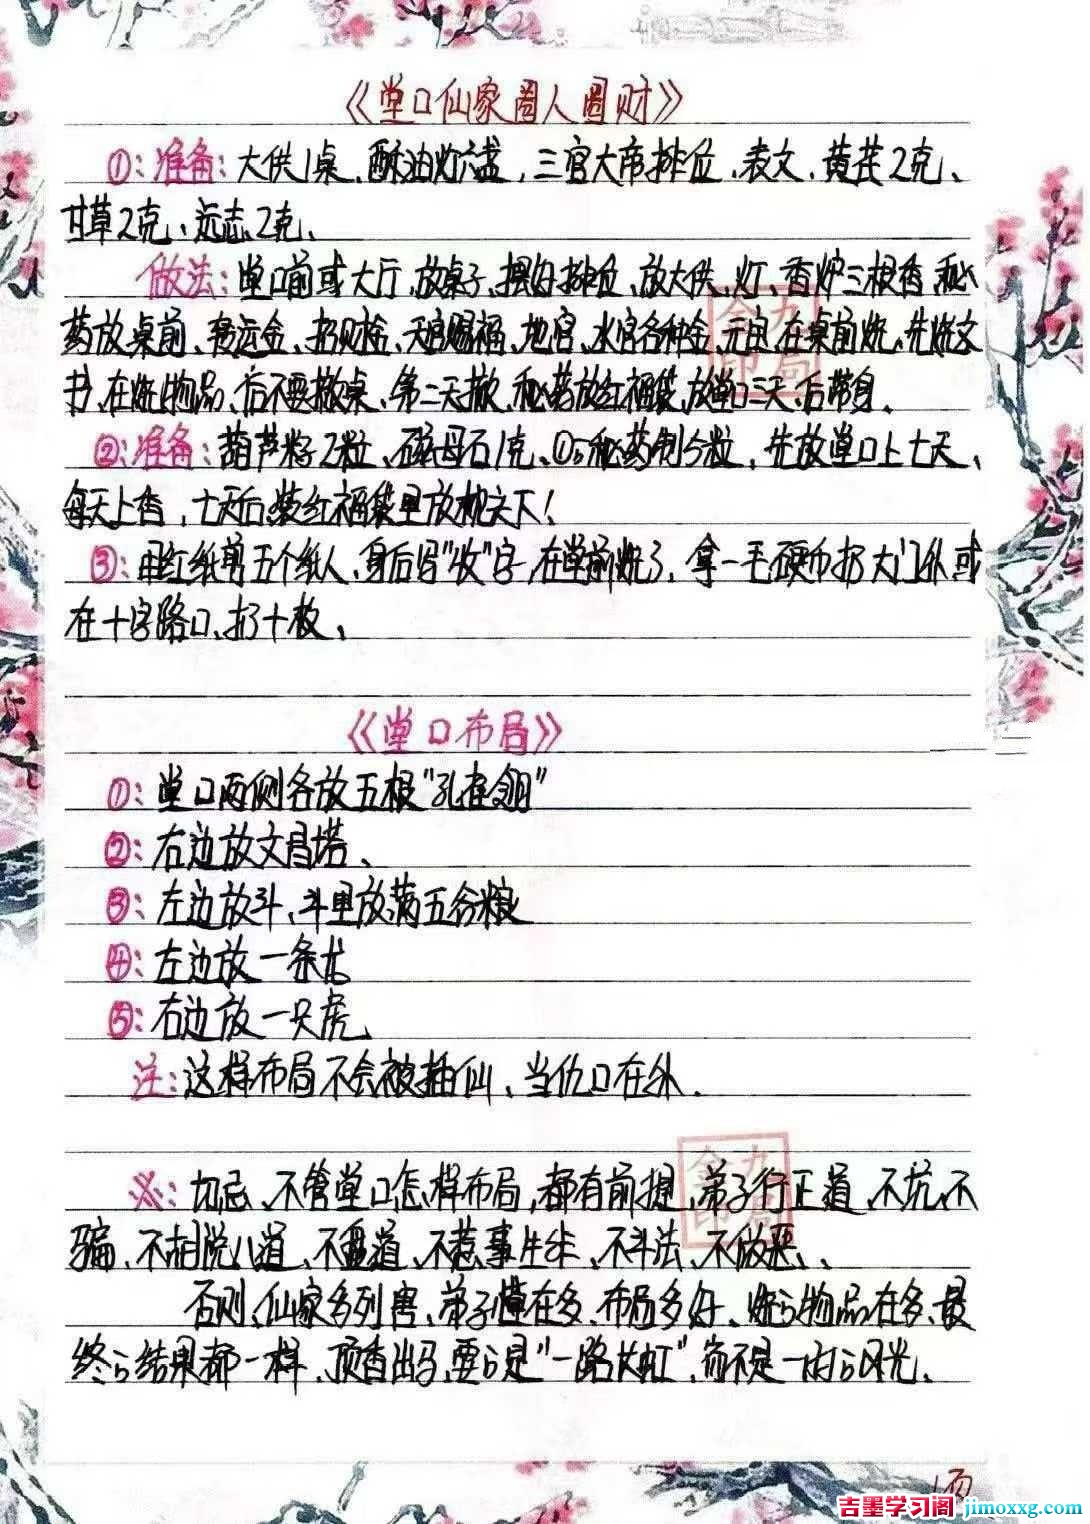 《堂口仙家圈人圈财》
①:准备:大供1桌、酥油灯六盏,三官大帝排位、表文、黄芪2克、
甘草2克、远志2克、
做法:堂口前或大厅、放桌子、摆好排位、放大供、灯、香炉三根香、秘
药放桌前、转运金、招财金、天官赐福、地官、水官各种金、元宝、在桌前烧、先烧文
书、在烧物品、后不要撤桌、第二天撤、秘药放红福袋、放堂口三天、后带身、
②:准备:葫芦籽2粒、磁母石1克、①的秘药制5粒,先放堂口上七天、
每天上香,七天后装红福袋里放枕头下!
③:用红纸剪五个纸人、身后写"收"字,在堂前烧了,拿一毛硬币扔大门外或
在十字路口、扔十枚、
《堂口布局》
①:堂口两侧各放五根"孔雀翎"
②:右边放文昌塔、
③:左边放斗、斗里放满五谷粮
④:左边放一条龙
⑤:右边放一只虎、
注:这样布局不会被抽仙、当仇口在外.
※:切忌、不管堂口怎样布局,都有前提,弟子行正道、不坑、不
骗、不胡说八道、不乱道、不惹事生非、不斗法、不做恶、、
否则、仙家多列害、弟子懂在多、布局多好、烧的物品在多、最
终的结果都一样、顶香出马、要的是"一路长虹",而不是一时的风光、
金九
印局
金九
印局
1页
吉墨学习阁 jimoxxg.com